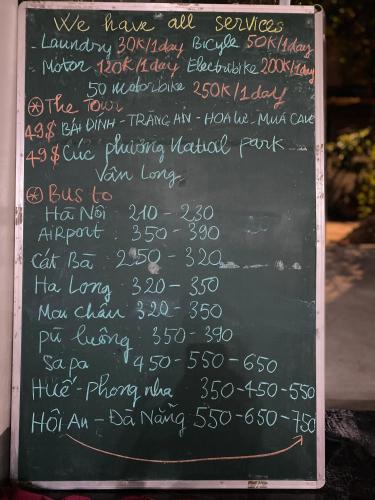 We have all services
- Laundry 30K/1day Bicyle 50K/1day
- Motor 120K/1day Electricbike 200K/1day
50 motorbike 250K/1day
The Tour
49$ BÁI ĐÍNH - TRÀNG AN - HOA LƯ - MUÁ CAVE
49$ Cúc phương Natial park
Vân Long
Bus to
Hà Nôi 210 - 230
AiRport 350 - 390
Cát Bà 250 - 320
Ha Long 320 - 350
Mai Châu 320 - 350
pù luông 350 - 390
Sapa 450 - 550 - 650
Huế - phong nha 350 - 450 - 550
Hôi An - Đà Nẵng 550 - 650 - 750